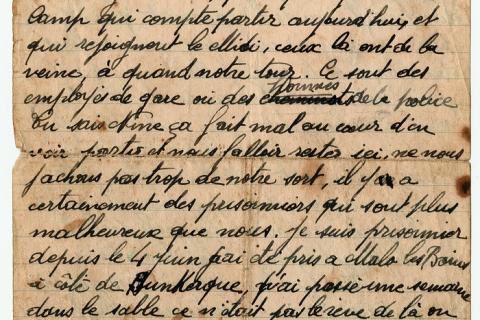 camp qui compte partir aujourd'hui, et
qui rejoignent le Midi, ceux là ont de la
veine, à quand notre tour. Ce sont des
hommes
employés de gare ou des cheminots de la police
Tu sais Nine ça fait mal au cœur d'en
voir partir et nous falloir rester ici, ne nous
fachons pas trop de notre sort, il y a
certainement des prisonniers qui sont plus
malheureux que nous. je suis prisonnier
depuis le 4 juin j'ai été pris a Malo les Bains
a côté de Dunkerque, j'ai passé une semaine
dans le sable ce n'était pas le rêve de là on